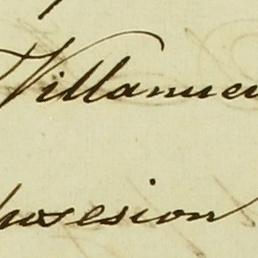 Villanuev
posesion